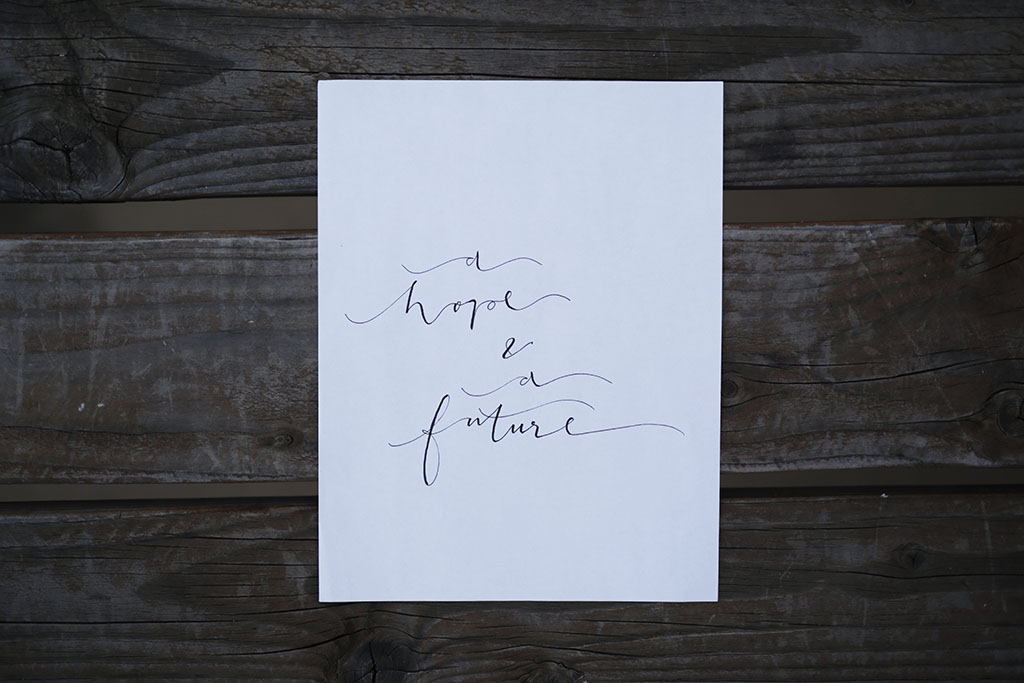 a
hope
&
a
future